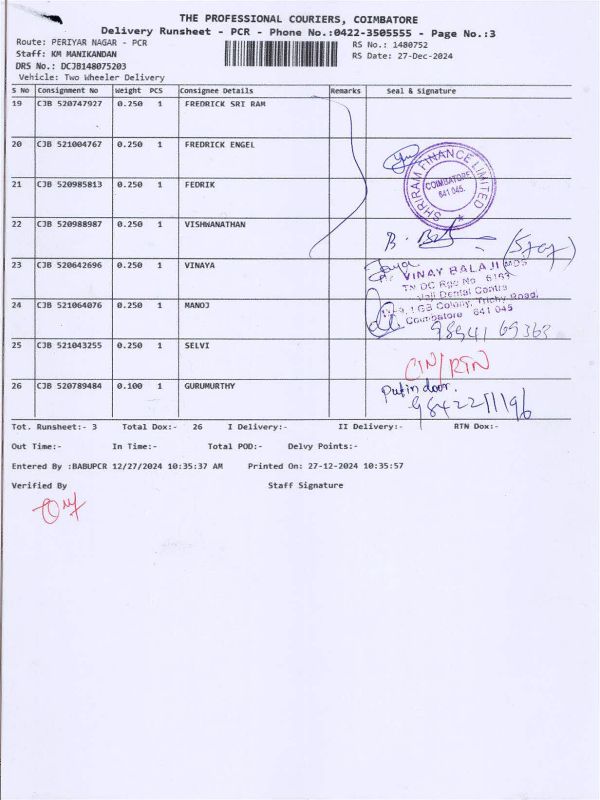 THE PROFESSIONAL COURIERS, COIMBATORE
Delivery Runsheet - PCR - Phone No.:0422-3505555 - Page No.:3
Route: PERIYAR NAGAR - PCR
RS No.: 1480752
Staff: KM MANIKANDAN
RS Date: 27-Dec-2024
DRS No.: DCJB148075203
Vehicle: Two Wheeler Delivery
S No Consignment No Weight PCS Consignee Details Remarks Seal & Signature
19 CJB 520747927 0.250 1 FREDRICK SRI RAM
20 CJB 521004767 0.250 1 FREDRICK ENGEL
SHRIRAM FINANCE LIMITED
COIMBATORE
641 045.
21 CJB 520985813 0.250 1 FEDRIK
22 CJB 520988987 0.250 1 VISHWANATHAN
23 CJB 520642696 0.250 1 VINAYA
Dr VINAY BALAJI MDS
TN DC Reg No
Dental Centre
Colony, Trichy Road,
Coimbatore 641 045
24 CJB 521064076 0.250 1 MANOJ
98941 69363
25 CJB 521043255 0.250 1 SELVI
CIN/RTN
26 CJB 520789484 0.100 1 GURUMURTHY
Put in door.
Tot. Runsheet:- 3 Total Dox:- 26 I Delivery:- II Delivery:- RTN Dox:-
Out Time:- In Time:- Total POD:- Delvy Points:-
Entered By :BABUPCR 12/27/2024 10:35:37 AM Printed On: 27-12-2024 10:35:57
Verified By Staff Signature